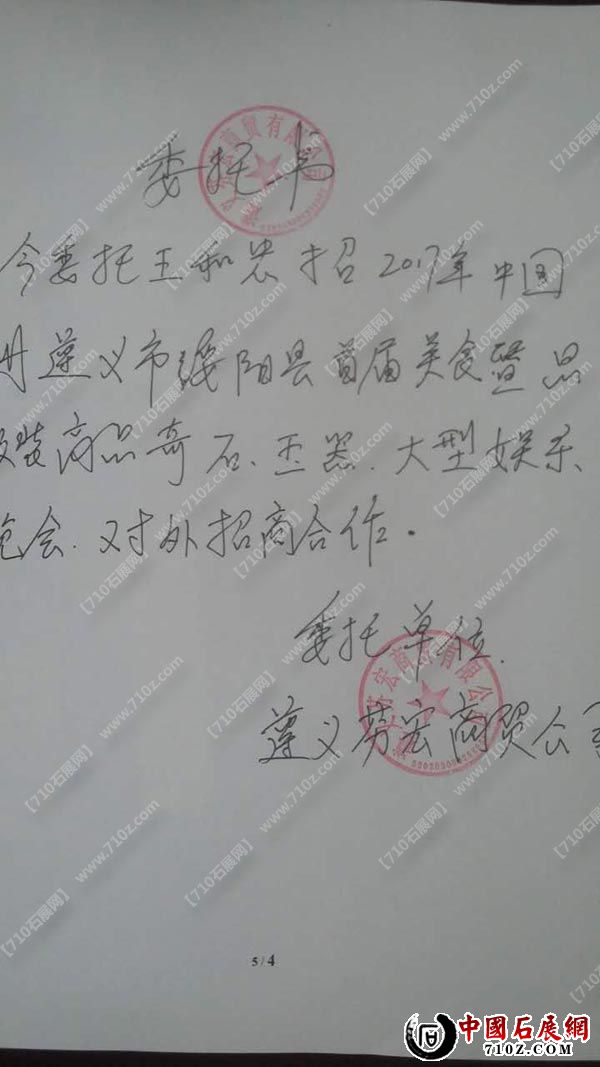 委托书
今委托王和农招2017年中国
遵义市绥阳县首届美食暨品
装商品奇石、玉器、大型娱乐
会、对外招商合作.
委托单位
遵义芳宏商贸公
5/4
中國石展網
710Z.COM
【710石展网】 www.710z.com